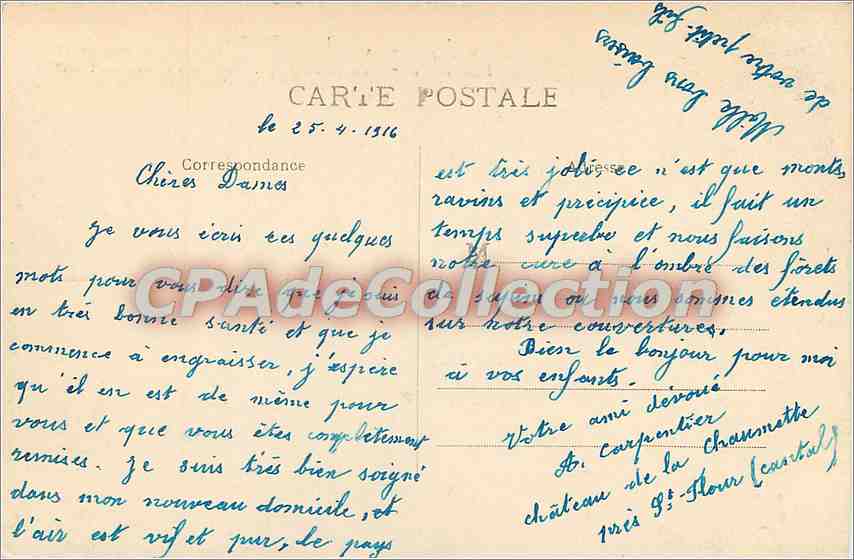 Mille bons baisers
de votre petit-fils
CARTE POSTALE
le 25-4-1916
Correspondance
Adresse
Chères Dames
Je vous écris ces quelques
mots pour vous dire que je suis
en très bonne santé et que je
commence à engraisser, j'espère
qu'il en est de même pour
vous et que vous êtes complètement
remises. Je suis très bien soigné
dans mon nouveau domicile, et
l'air est vif et pur, le pays
est très joli, ce n'est que monts,
ravins et précipice, il fait un
temps superbe et nous faisons
notre cure à l'ombre des fôrets
de sapin où nous sommes étendus
sur notre couvertures.
Bien le bonjour pour moi
à vos enfants.
Votre ami dévoué
A. Carpentier
château de la Chaumette
près St-Flour (Cantal)
CPAdeCollection